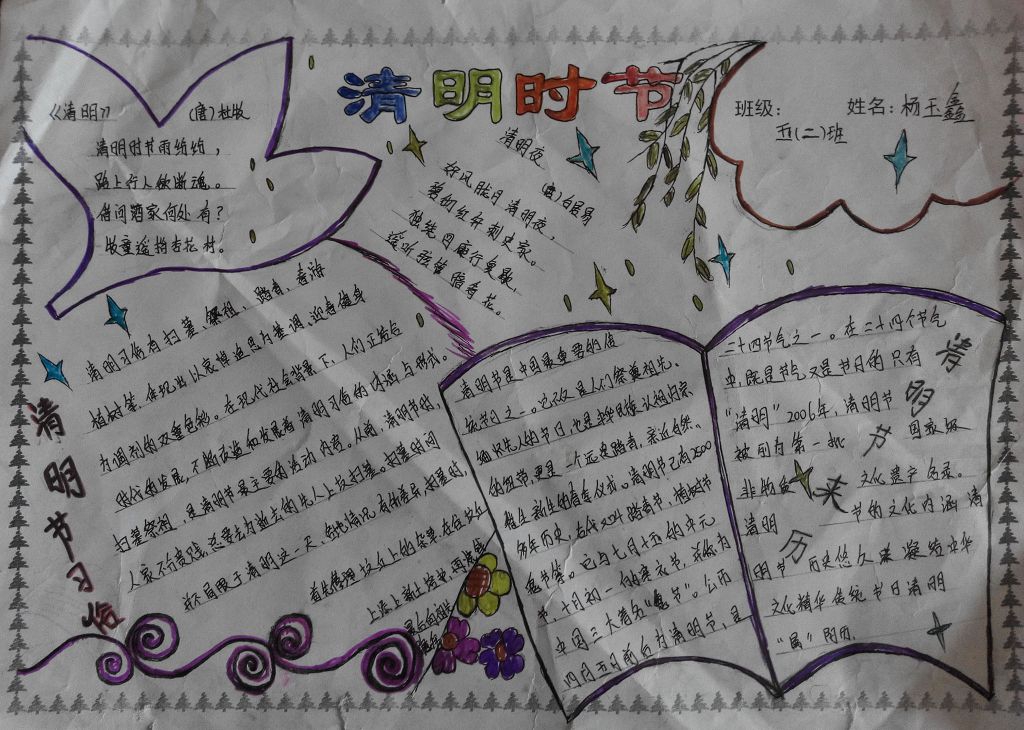 清明时节
班级:
五(二)班
姓名: 杨玉鑫
《清明》
(唐)杜牧
清明时节雨纷纷,
路上行人欲断魂。
借问酒家何处有?
牧童遥指杏花村。
清明夜
(唐)白居易
好风胧月清明夜,
碧砌红轩刺史家。
独绕回廊行复歇,
遥听弦管暗看花。
清明节习俗
清明习俗有扫墓、祭祖、踏青、春游
植树等,体现出以哀悼追思为基调、迎春健身
为调剂的双重色彩。在现代社会背景下,人们正惹合
时代的发展,不断改造和发展着清明习俗的内涵与形式。
扫墓祭祖,是清明节最主要的活动内容。从前,清明节时,
人家不分贵贱,总要去为逝去的先人上坟扫墓。扫墓时间
并不局限于清明这一天,各地情况有所差异,扫墓时,
首先清理坟
上添上新土
清明节来历
清明节是中国最重要的传
统节日之一。它不仅是人们祭奠祖先、
缅怀先人的节日,也是中华民族认祖归宗
的纽带,更是一个远足踏青、亲近自然、
催生新生的春季仪式。清明节已有2500
多年历史,古代又叫踏青节,植树节
鬼节等。它与七月十五的中元
节,十月初一的寒衣节,并称为
中国三大著名"鬼节"。公历
四月五日前后为清明节,是
二十四节气之一。在二十四个节气
中,既是节气又是节日的只有
"清明"2006年,清明节
被列为第一批国家级
非物质文化遗产名录。
清明节的文化内涵 清
明节历史悠久 凝结中华
文化精华传统节日清明